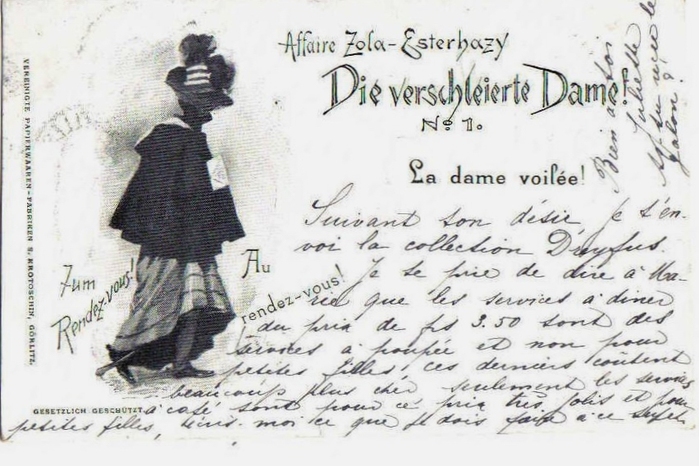 Affaire Zola-Esterhazy
Die verschleierte Dame!
No 1.
La dame voilée!
Zum
Rendez-vous!
Au
rendez-vous!
VEREINIGTE PAPIERWAAREN-FABRIKEN S. KROTOSCHIN, GÖRLITZ.
GESETZLICH GESCHÜTZT.
Suivant son désir je t'en-
voi la collection Dreyfus.
Je te prie de dire à Ma-
rie que les services à diner
du prix de frs 3.50 sont des
services à poupée et non pour
petites filles, ces derniers coûtent
beaucoup plus cher seulement les services
à café sont pour ce prix très jolis et pour
petites filles, dis-moi ce que je dois faire à ce sujet
Bien à toi
Juliette